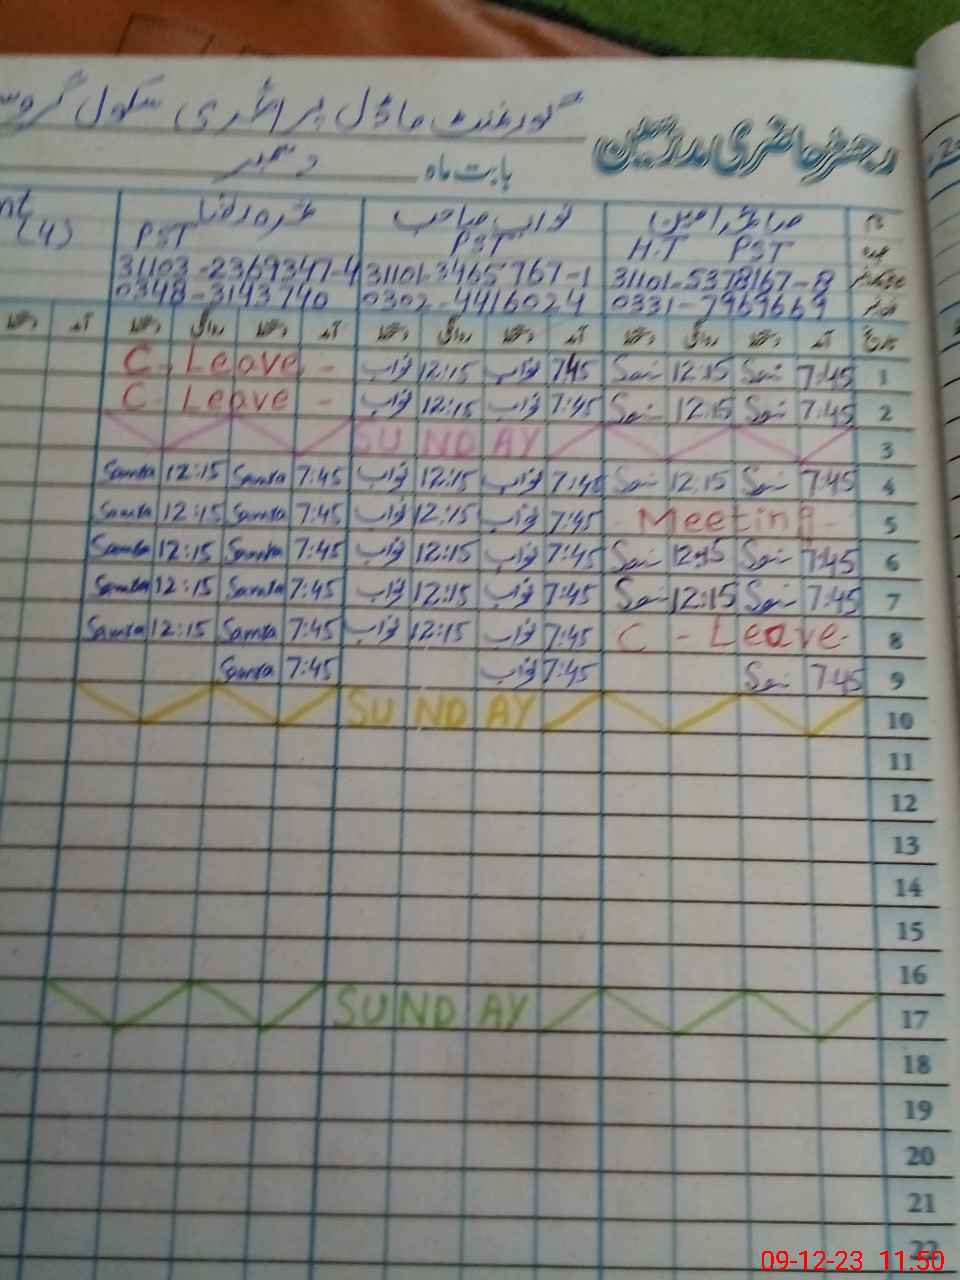 رجسٹر حاضری مدرسین گورنمنٹ ماڈل پرائمری سکول
بابت ماہ دسمبر
نام
عہدہ H.T PST PST PST
31101-5378167-8 31101-3465767-1 31103-2369347-4
0331-7969669 0302-4416024 0348-3143740
تاریخ آمد دستخط روانگی دستخط آمد دستخط روانگی دستخط آمد دستخط روانگی دستخط آمد دستخط
1 7:45 12:15 7:45 نواب 12:15 نواب C- Leave -
2 7:45 12:15 7:45 نواب 12:15 نواب C- Leave -
3 SUNDAY
4 7:45 12:15 7:45 نواب 12:15 نواب 7:45 Samra 12:15 Samra
5 - Meeting - 7:45 نواب 12:15 نواب 7:45 Samra 12:15 Samra
6 7:45 12:15 7:45 نواب 12:15 نواب 7:45 Samra 12:15 Samra
7 7:45 12:15 7:45 نواب 12:15 نواب 7:45 Samra 12:15 Samra
8 C - Leave - 7:45 نواب 12:15 نواب 7:45 Samra 12:15 Samra
9 7:45 7:45 نواب 7:45 Samra
10 SUNDAY
11
12
13
14
15
16
17 SUNDAY
18
19
20
21
22
09-12-23 11:50